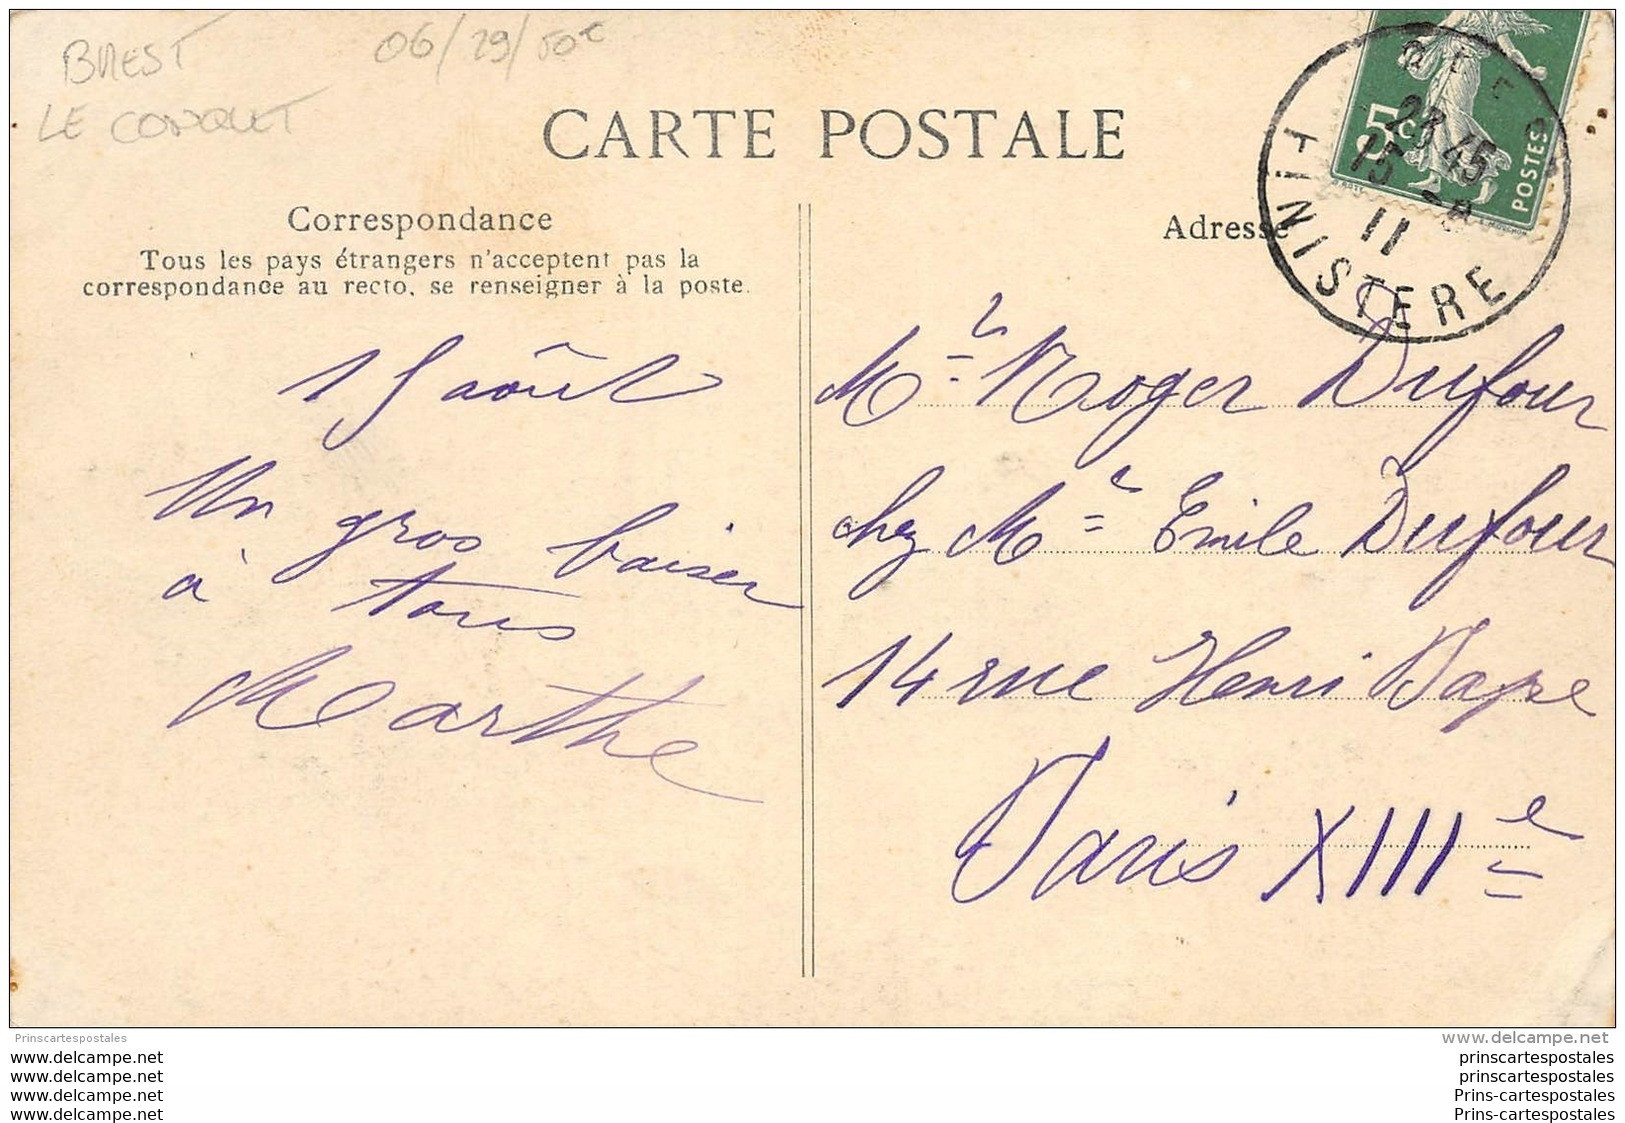 BREST
LE CONQUET
06/29/50€
CARTE POSTALE
Correspondance
Tous les pays étrangers n'acceptent pas la
correspondance au recto, se renseigner à la poste.
15 août
Un gros baiser
à tous
Marthe
Adresse
5c
POSTES
23 45
15 -8
11
FINISTERE
Mr Roger Dufour
chez Me Emile Dufour
14 rue Henri Pape
Paris XIIIe
Prinscartespostales
www.delcampe.net
www.delcampe.net
www.delcampe.net
www.delcampe.net
www.delcampe.net
prinscartespostales
prinscartespostales
Prins-cartespostales
Prins-cartespostales